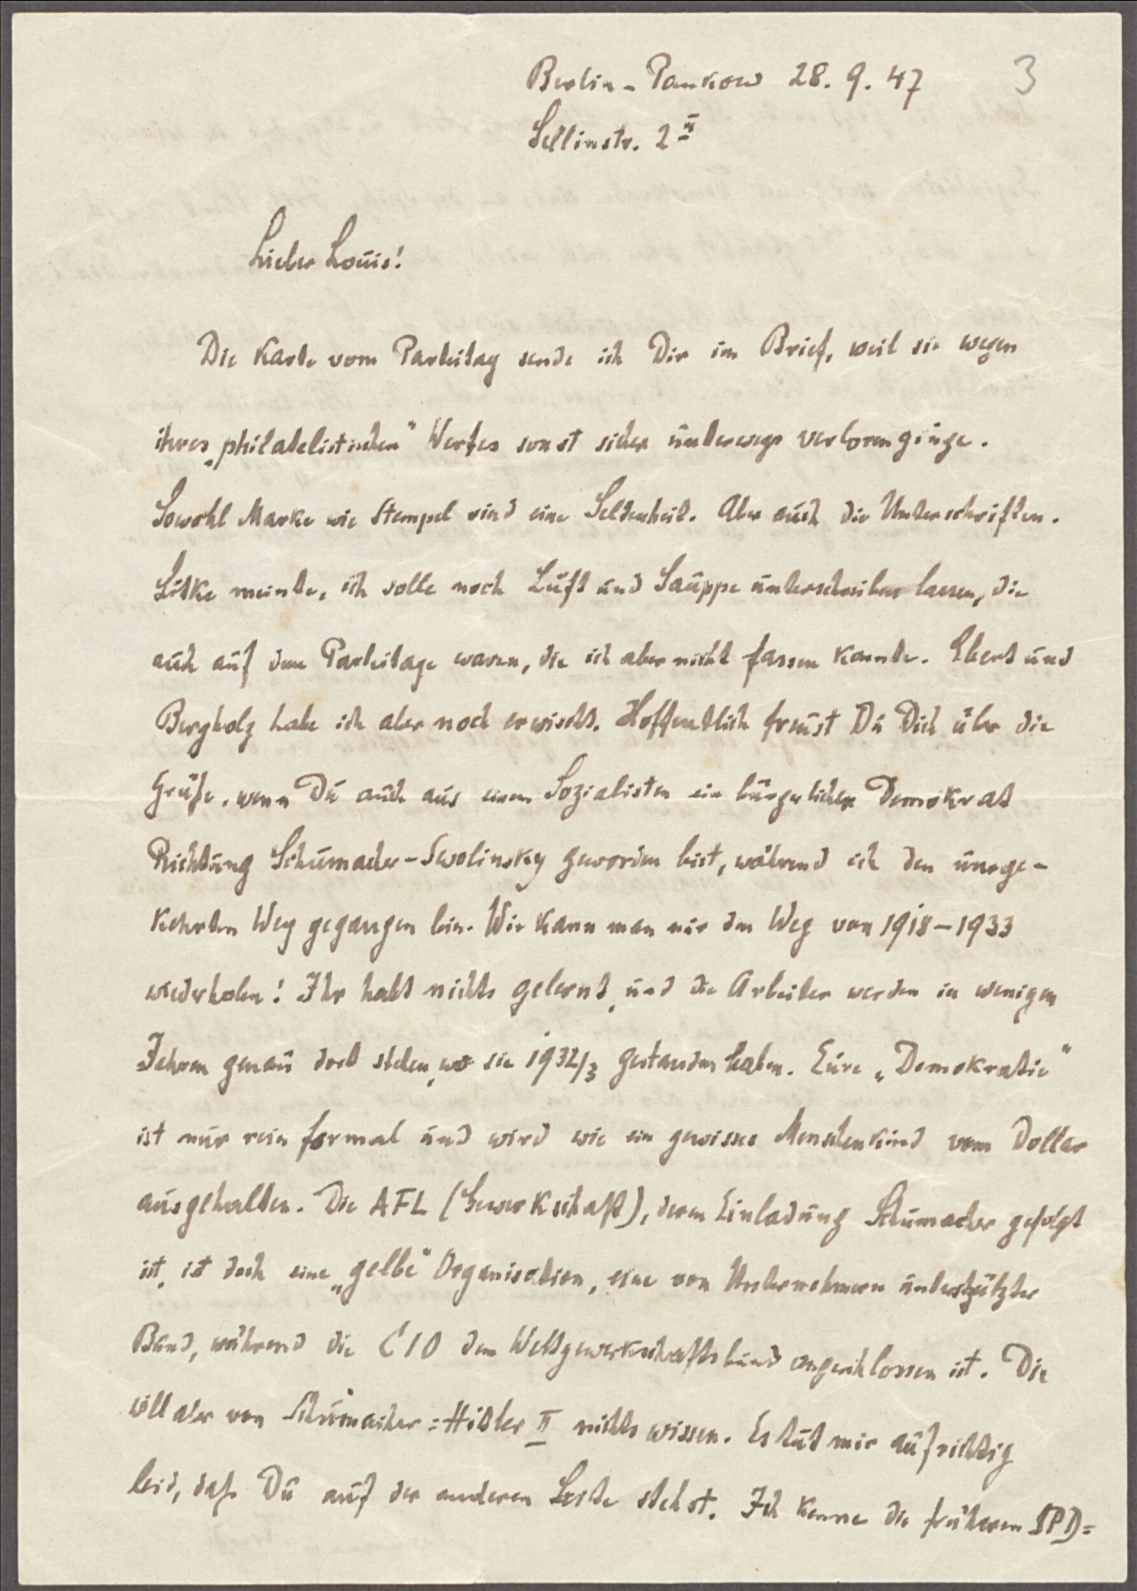 Berlin-Pankow 28. 9. 47
3
Sellinstr. 2 II
Lieber Louis!
Die Karte vom Parteitag sende ich Dir im Brief, weil sie wegen
ihres „philatelistischen“ Wertes sonst sicher unterwegs verlorenginge.
Sowohl Marke wie Stempel sind eine Seltenheit. Aber auch die Unterschriften.
Litke meinte, ich solle noch Luft und Sauppe unterschreiben lassen, die
auch auf dem Parteitage waren, die ich aber nicht fassen konnte. Ebert und
Bergholz habe ich aber noch erwischt. Hoffentlich freust Du Dich über die
Grüße, wenn Du auch aus einem Sozialisten ein bürgerlicher Demokrat
Richtung Schumacher-Swolinsky geworden bist, während ich den umge-
kehrten Weg gegangen bin. Wie kann man nur den Weg von 1918-1933
wiederholen! Ihr habt nichts gelernt, und die Arbeiter werden in wenigen
Jahren genau dort stehen, wo sie 1932/3 gestanden haben. Eure „Demokratie“
ist nur rein formal und wird wie ein gewisses Menschenkind vom Dollar
ausgehalten. Die AFL (Gewerkschaft), deren Einladung Schumacher gefolgt
ist, ist doch eine „gelbe“ Organisation, eine von Unternehmern unterstützter
Bund, während die CIO dem Weltgewerkschaftsbund angeschlossen ist. Die
will aber von Schumacher=Hitler II nichts wissen. Es tut mir aufrichtig
leid, daß Du auf der anderen Seite stehst. Ich kenne die früheren SPD=